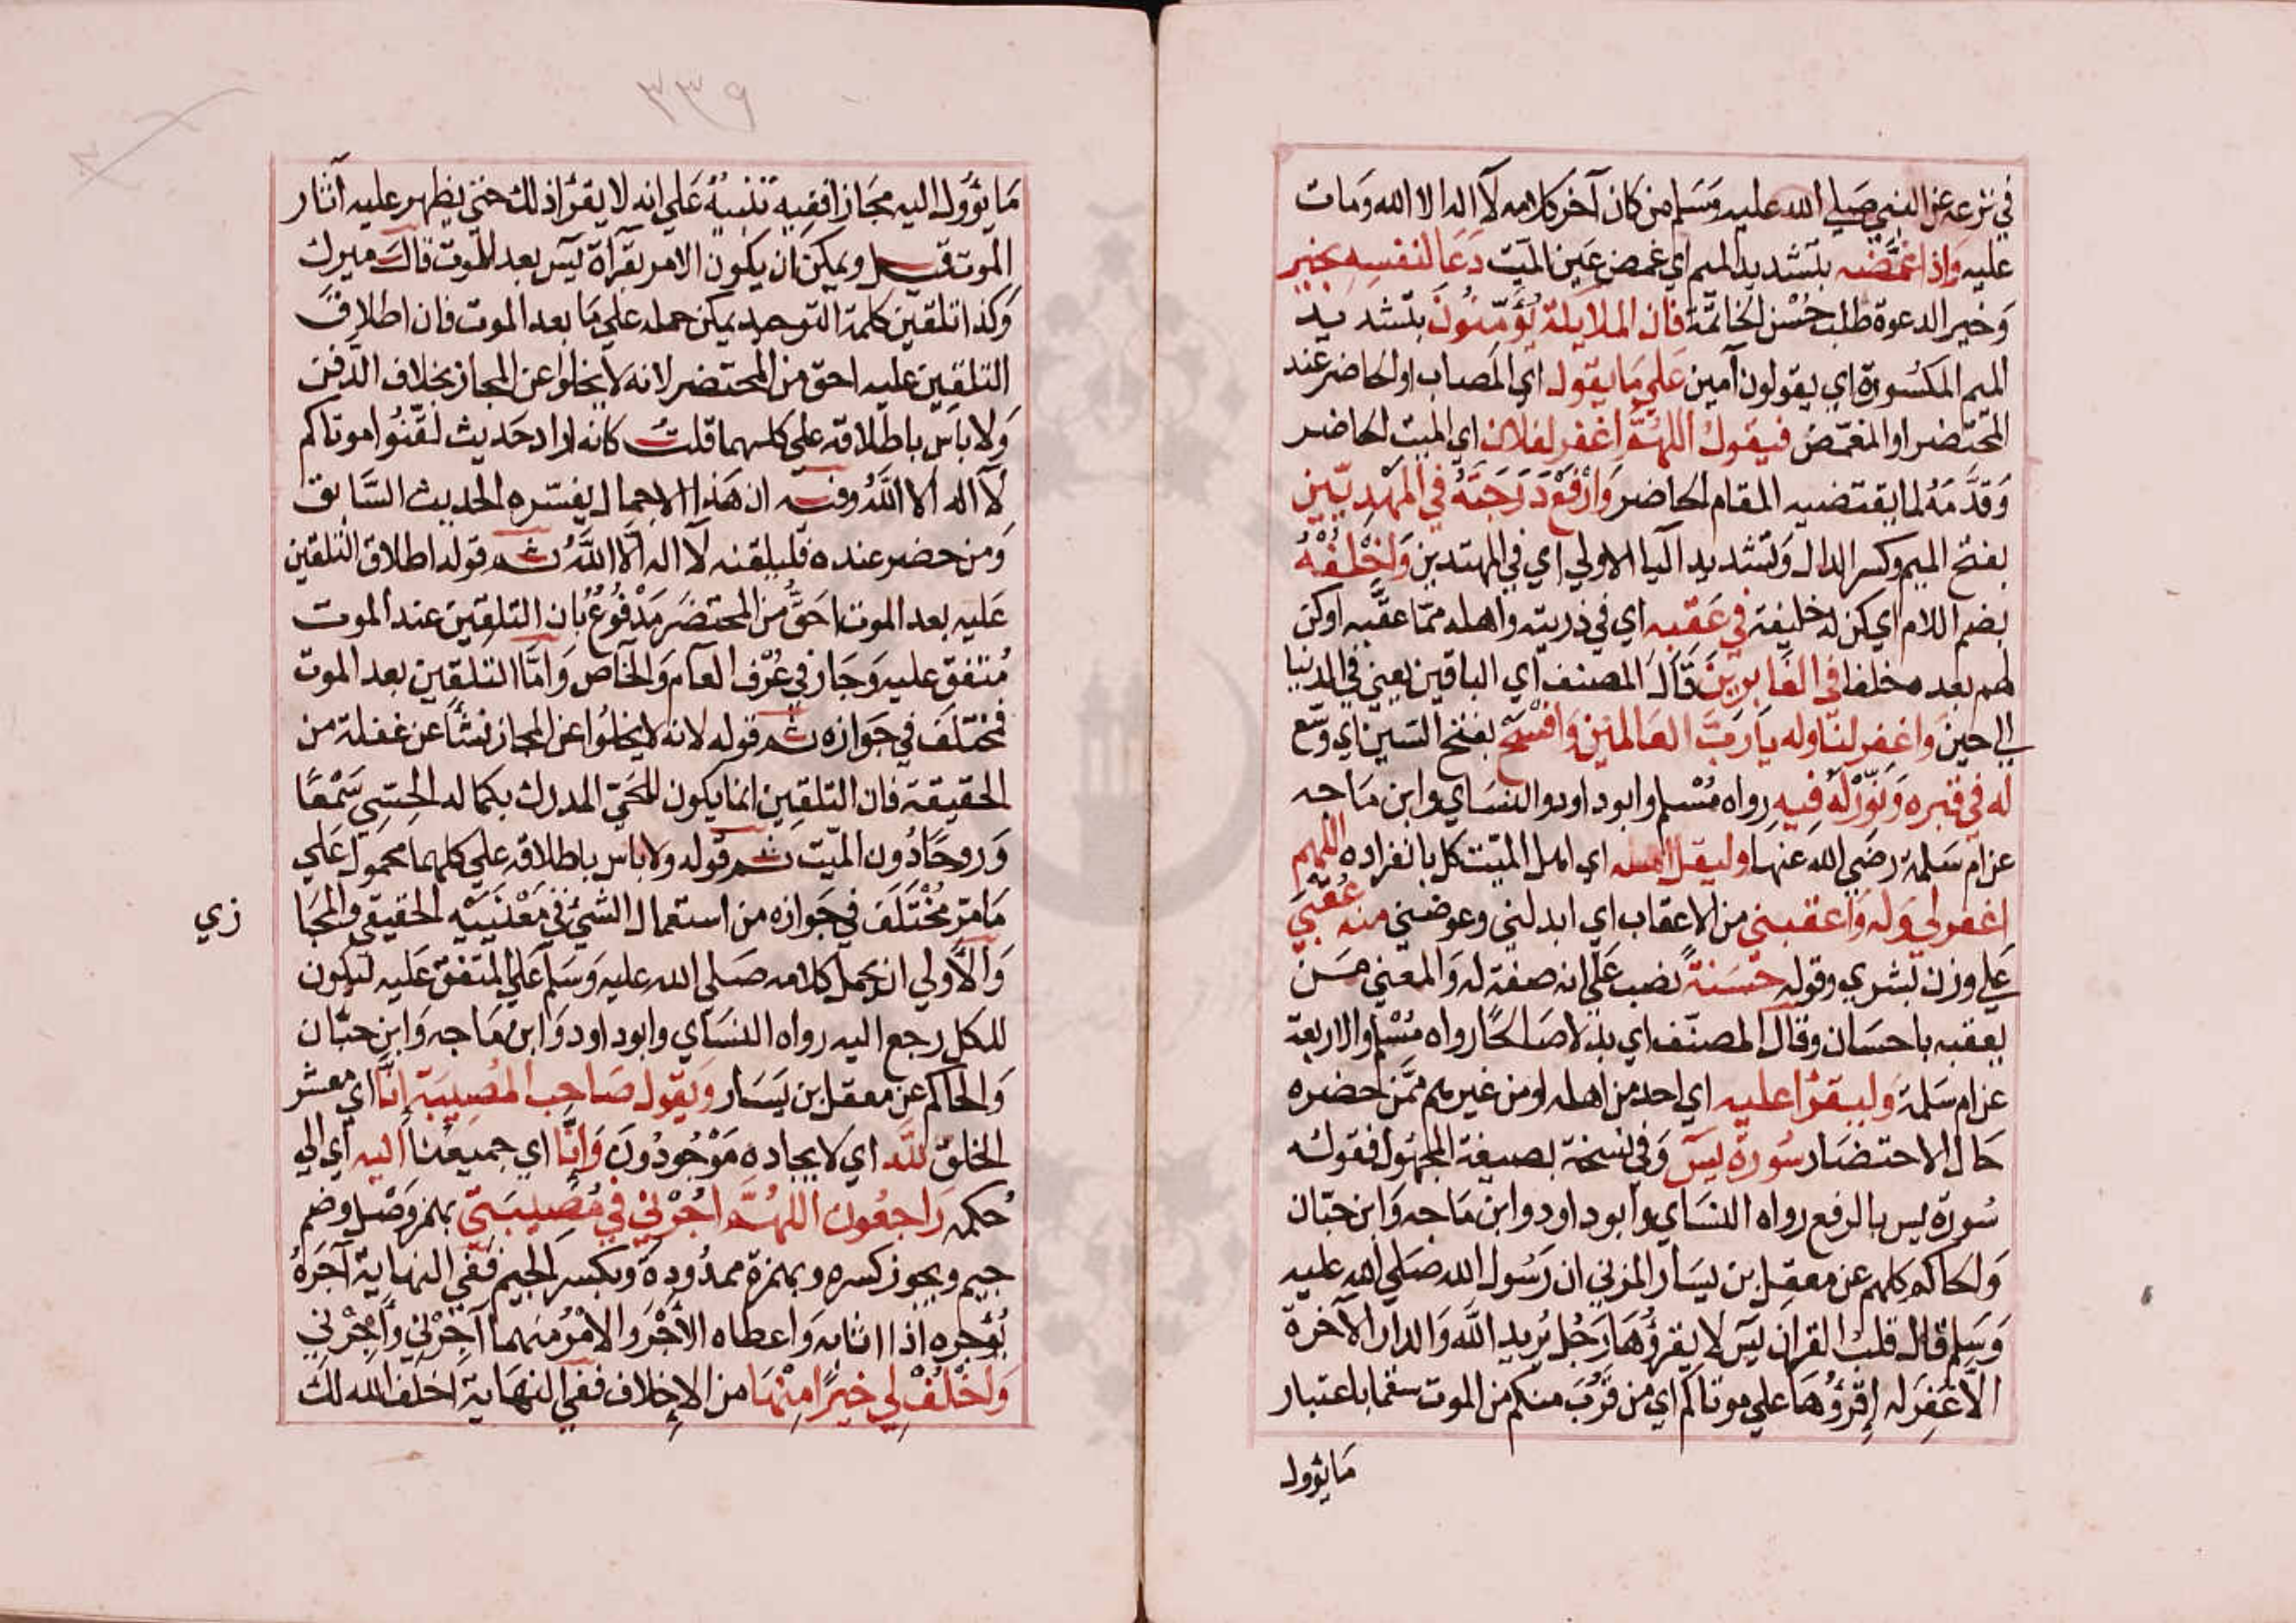 في نزعه عن النبي صلي الله عليه وسلم من كان آخر كلامه لا اله الا الله ومات
عليه واذا غمّضه بتشديد الميم اي غمض عين الميت دعا لنفسه بخير
وخير الدعوة طلب حُسْن الخاتمة فان الملايكة يؤمّنون بتشديد
الميم المكسورة اي يقولون آمين علي ما يقول اي المصاب او الحاضر عند
المحتضر او المغمّض فيقول اللهمّ اغفر لفلان اي الميت الحاضر
وقدّمه لما يقتضيه المقام الحاضر وارفع درجته في المهديّين
بفتح الميم وكسر الدال وتشديد اليا الاولي اي في المهتدين واخلفه
بضم اللام اي كن له خليفة في عقبه اي في ذريته واهله ممّا عقّبه او كن
لهم بعده مخلفا في الغابرين قال المصنف اي الباقين يعني في الدنيا
الي حين واغفر لنا وله يا رب العالمين وافسح بفتح السين اي وسّع
له في قبره ونوّر له فيه رواه مُسْلم وابو داود والنساي وابن ماجه
عن ام سلمة رضي الله عنها وليقل اهله اي اهل الميت كل بانفراده اللهم
اغفر لي وله واعقبني من الاعقاب اي ابدلني وعوضني منه عُقبَي
علي وزن بشري وقوله حسنةً نصب علي انه صفة له والمعني حسن
يعقبه باحسان وقال المصنّف اي بدلا صالحًا رواه مُسْلم والاربعة
عن ام سلمة وليقرا عليه اي احد من اهله او من غيرهم ممّن حضره
حال الاحتضار سُورة يسٓ وفي نسخة بصيغة المجهول فقوله
سُورة يس بالرفع رواه النساي وابو داود وابن ماجه وابن حبّان
والحاكم كلهم عن معقل بن يسار المزني ان رسُول الله صلي الله عليه
وسلم قال قلب القران يسٓ لا يقرؤها رجُل يُريد الله والدار الآخرة
الّا غُفِرَ له اِقرؤُها علي موتاكم اي من قرُبَ منكم من الموت سمّا باعتبار
مايؤول
٣٣٩
مَا يؤول اليه مجازا ففيه تنبيهٌ علي انه لا يقرؤ اذ ذلك حتي يظهر عليه آثار
الموت قيل ويمكن ان يكون الامر بقرآة يسٓ بعد الموت قال ميرك
وكذا تلقين كلمة التوحيد يمكن حمله علي ما بعد الموت فان اطلاق
التلقين عليه احق من المحتضر لانه لا يخلوا عن المجاز بخلاف الدفن
ولا باس باطلاقه علي كليهما قلتُ كانه اراد حَديث لقّنُوا موتاكم
لا اله الا الله وفيه ان هذا الاجمال يفسّره الحديث السَّابق
ومن حضر عنده فليلقنه لا اله الّا الله ثم قوله اطلاق التلقين
عليه بعد الموت احقّ من المحتضر مَدْفُوع بان التلقين عند الموت
مُتفق عليه وجاز في عُرْف العام والخاص وامّا التلقين بعد الموت
فمختلَف في جوازه ثم قوله لانه لا يخلُوا عن المجاز نشأ عن غفلة من
الحقيقة فان التلقين انما يكون للحَيّ المدرك بكماله الحِسّي سَمْعًا
وروحًا دُون الميّت ثم قوله ولا باس باطلاقه علي كليهما محمول علي
مَا مرّ مُخْتَلَف في جوازه من استعمال الشي في مَعْنيَيْه الحقيقي والمجا
زي
والاَولي ان يحمل كلامه صلي الله عليه وسلم علي المتفق عليه ليكون
للكل رجع اليه رواه النساي وابو داود وابن ماجه وابن حبّان
والحاكم عن معقل ابن يسار ويقول صاحب المُصيبة اِنّا اي معشر
الخلق لله اي لايجاده مَوْجُودُون وانّا اي جميعنا اليه اي الي
حُكمه راجعُون اللهمّ اجُرْني في مُصيبَتي بهمز وَصْل وضم
جيم ويجوز كسره وبهمزة ممدُودة وبكسر الجيم ففي النهاية آجَرَهُ
يُؤجره اذا اثابه واعطاه الأجْر والامْر منهما آجِرْني وأْجُرْني
واَخْلُفْ لي خيرًا مِنْها من الإخلاف ففي النهاية اخلف الله لك